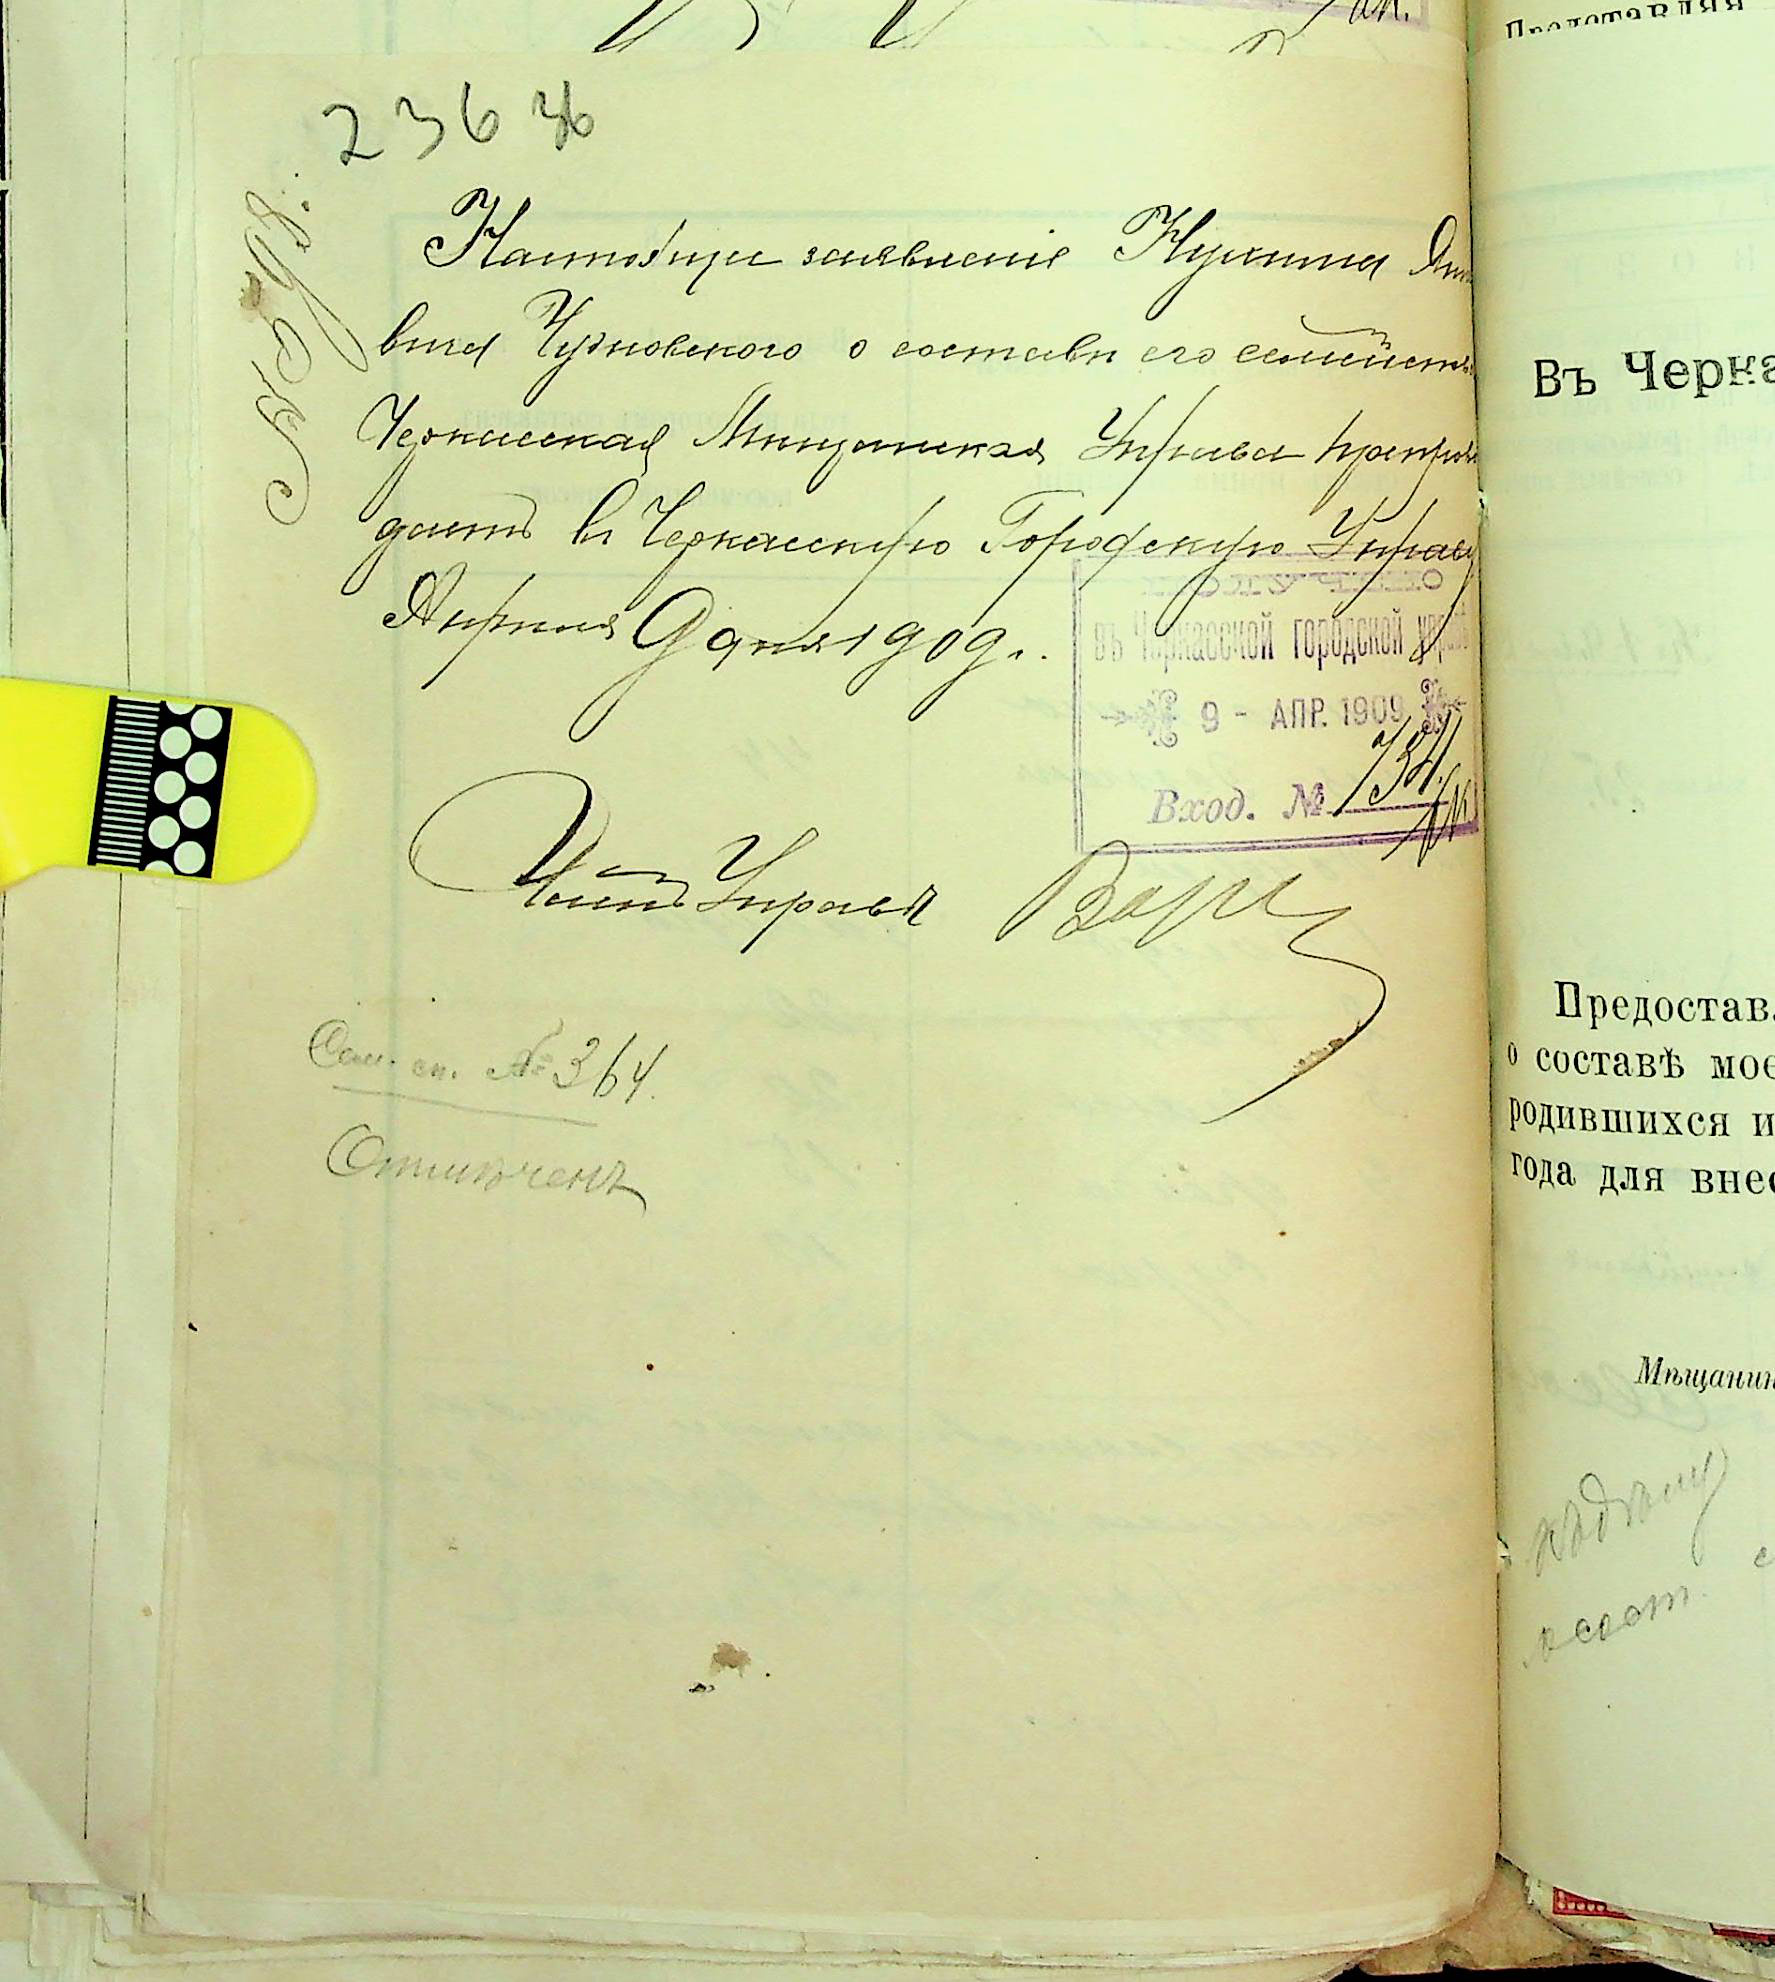 236 зв
№ 598.
Настоящее заявление Нухима
вича Чудновского о составе его семейст
Черкасская Мещанская Управа препрово
дает в Черкасскую Городскую Управу
Апреля 9 дня 1909 г.
ПОЛУЧЕНО
въ Черкасской городской управѣ
9 - АПР. 1909
Вход. № 734.
Член Управы
Сем. сп. № 364.
Отмѣченъ
Представляя
Въ Черка
Предостав
о составѣ мое
родившихся и
года для внес
Мѣщанин